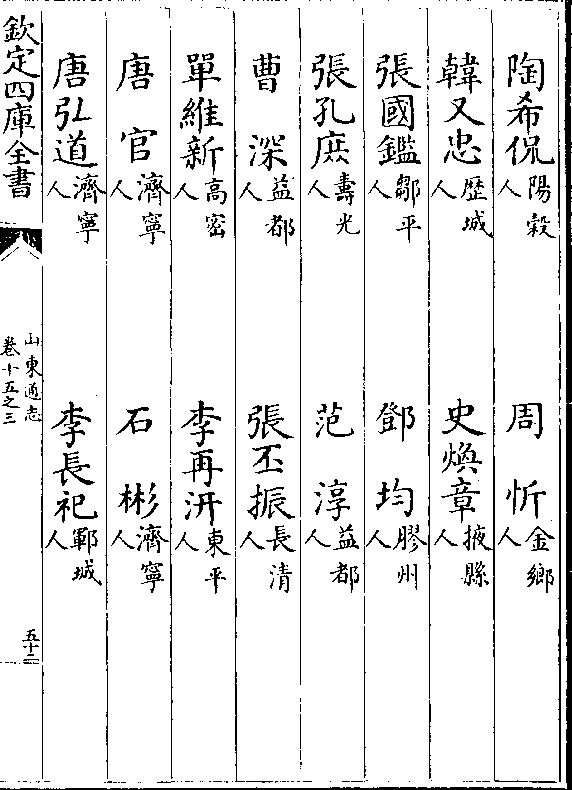 陶希侃陽穀人　周忻金鄉人
韓又忠歴城人　史煥章掖縣人
張國鑑鄒平人　鄧均膠州人
張孔庶壽光人　范淳益都人
曹深益都人　張丕振長清人
單維新高密人　李再汧東平人
唐官濟寧人　石彬濟寧人
唐弘道濟寧人　李長祀鄆城人
欽定四庫全書
山東通志
卷十五之三
五十二